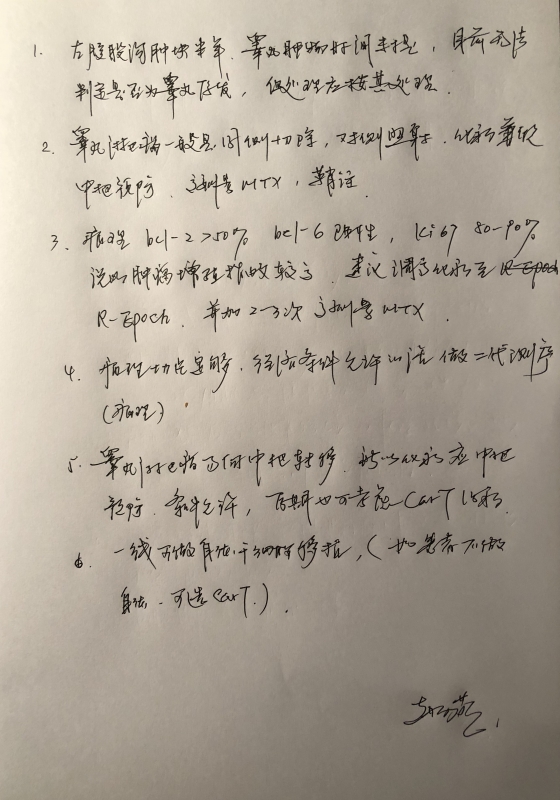 1. 左腹股沟肿块半年, 睾丸肿物时间未提, 目前无法
判定是否为睾丸原发, 但处理应按其处理.
2. 睾丸淋巴瘤一般是同侧切除, 对侧照射. 化疗兼顾
中枢预防. 大剂量MTX, 鞘注
3. 病理 bcl-2 >50% bcl-6 阳性, Ki67 80-90%
说明肿瘤增殖指数较高 建议调高化疗至
R-Epoch. 并加2-3次大剂量MTX.
4. 病理切片足够, 经济条件允许的话 做二代测序
(病理)
5. 睾丸淋巴瘤易向中枢转移. 所以化疗应中枢
预防. 条件允许, 后期也可考虑CarT治疗.
6. 一线可做自体干细胞移植, (如患者不做
自体. 可选CarT.).